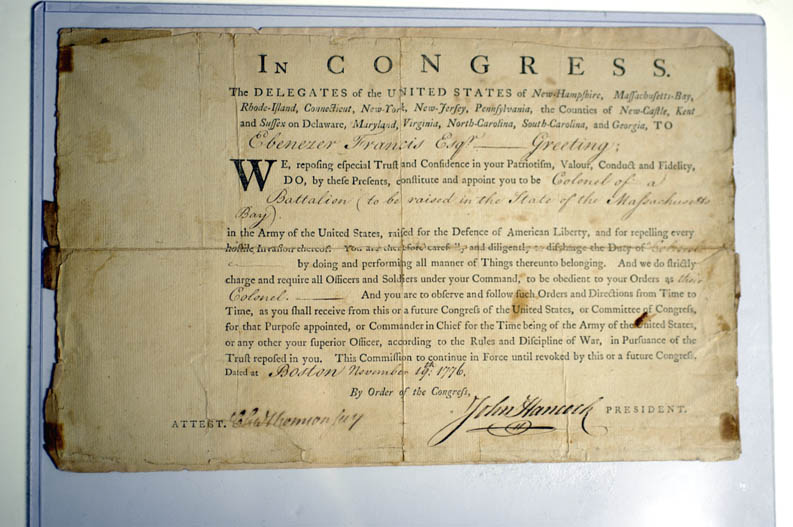 IN CONGRESS.
The DELEGATES of the UNITED STATES of New-Hampshire, Maſſachuſetts-Bay,
Rhode-Iſland, Connecticut, New-York, New-Jerſey, Pennſylvania, the Counties of New-Caſtle, Kent
and Suſſex on Delaware, Maryland, Virginia, North-Carolina, South-Carolina, and Georgia, TO
Ebenezer Francis Esqr. Greeting;
WE, repoſing eſpecial Truſt and Confidence in your Patriotiſm, Valour, Conduct and Fidelity,
DO, by theſe Preſents, conſtitute and appoint you to be Colonel of a
Battalion (to be raised in the State of the Massachusetts
Bay)
in the Army of the United States, raiſed for the Defence of American Liberty, and for repelling every
hoſtile Invaſion thereof. You are therefore carefully and diligently to diſcharge the Duty of Colonel
by doing and performing all manner of Things thereunto belonging. And we do ſtrictly
charge and require all Officers and Soldiers under your Command, to be obedient to your Orders as their
Colonel. And you are to obſerve and follow ſuch Orders and Directions from Time to
Time, as you ſhall receive from this or a future Congreſs of the United States, or Committee of Congreſs,
for that Purpoſe appointed, or Commander in Chief for the Time being of the Army of the United States,
or any other your ſuperior Officer, according to the Rules and Diſcipline of War, in Purſuance of the
Truſt repoſed in you. This Commiſſion to continue in Force until revoked by this or a future Congreſs.
Dated at Boston November 19th. 1776.
By Order of the Congreſs,
John Hancock PRESIDENT.
ATTEST. Chas Thomson secy